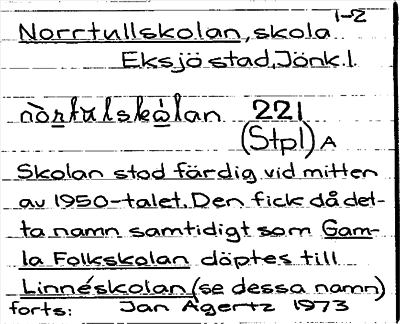 1-2
Norrtullskolan, skola
Eksjö stad, Jönk. l.
221
(Stpl) A
Skolan stod färdig vid mitten
av 1950-talet. Den fick då det-
ta namn samtidigt som Gam-
la Folkskolan döptes till
Linnéskolan (se dessa namn)
forts: Jan Agertz 1973